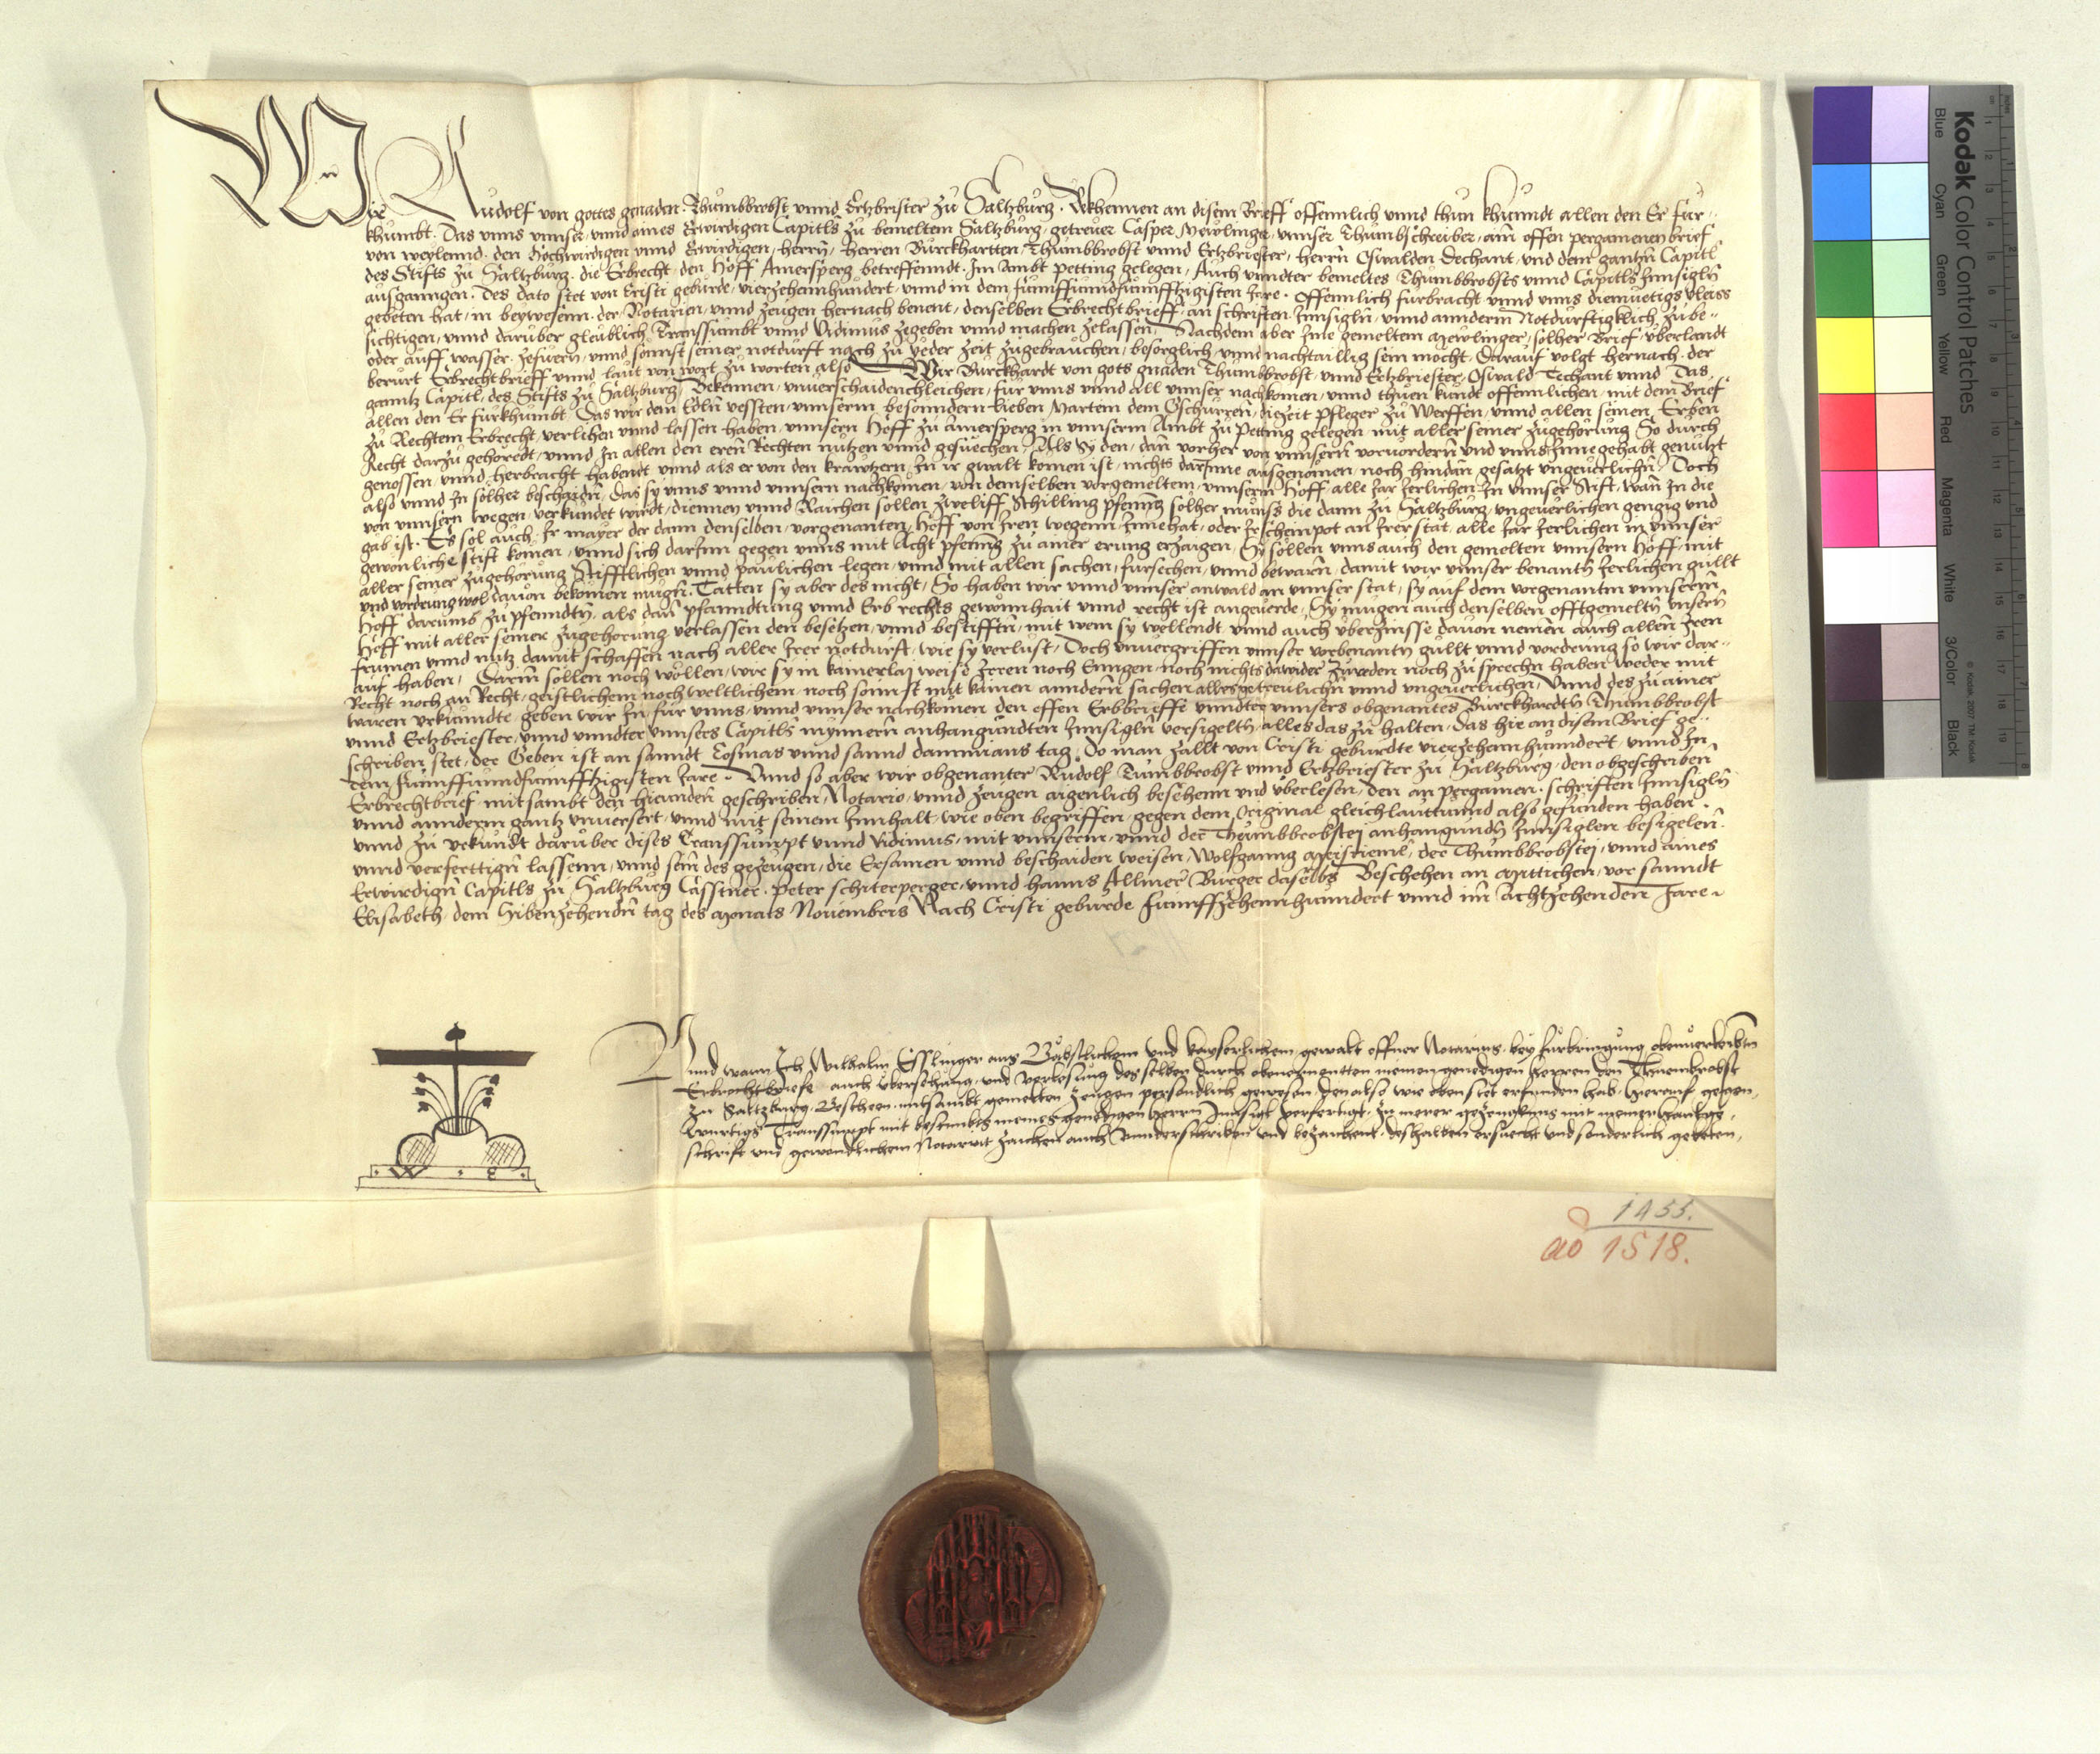 Wir Rudolf von gottes genaden Thumbbrobst vnnd Ertzbriester zu Saltzburg. Bekhennen an disem Brieff offennlich vnnd thun khunndt allen den Er fur-
khumbt. Das vnns vnnser vnnd aines Erwirdigen Capitls zu bemeltem Saltzburg getreuer Casper Mewlinger vnnser Thumbschreiber, ain offen pergamenen brief
von weylennd. den Hochwirdigen vnnd Erwirdigen, herrn, herren Burckhartten, Thumbbrobst vnnd Ertzbriester, herrn Oswalden Dechant, vnd dem gantzn Capitl
des Stifts zu Saltzburg. die Erbrecht, den Hoff Amersperg betreffenndt. Im Ambt petting gelegen, Auch vnndter bemeltes Thumbbrobsts vnnd Capitls Innsigln
ausganngen. Des dato stet von Cristi geburde, vierzehenhundert, vnnd in dem funnffunndfunffzigisten Jare. Offennlich furbracht vnnd vnns diemuetigs vleiss
gebeten hat, in beywesenn. der Notarien, vnnd zeugen hernach benent, denselben Erbrechtbrieff, an schriften Innsigln, vnnd annderm Notdurftigklich zu be-
sichtigen, vnnd daruber glaublich Transsumbt vnnd Vidimus zegeben vnnd machen zelassen. Nachdem aber Ime gemeltem Mewlinger, solher Brief, vberlandt
oder auff wasser. zefuern, vnnd sonnst seiner notdurft nach zu yeder zeit zugebrauchen, besorglich, vnnd nachtaillig sein mocht. Darauf volgt hernach. der
berurt Erbrechtbrieff vnnd laut von wort zu worten also Wir Burckhardt von gots gnaden Thumbbrobst vnnd Ertzbriester, Oswald Techant vnnd Das
ganntz Capitl, des Stifts zu Saltzburg, Bekennen, vnuerschaidenchleichen, fur vnns vnnd all vnnser nachkomen, vnnd thuen kundt offennlichen, mit dem Brief
allen den Er furkhumbt Das wir dem Edln vessten, vnnserm besonndern lieben Martein dem Oschurzen, diezeit pfleger zu Werffen, vnnd allen seinen Erben
zu Rechtem Erbrecht, verlihen vnnd lassen haben, vnnsern Hoff zu amersperg in vnnserm Ambt zu Petting gelegen, mit aller seiner zugehorung So durch
Recht darzu gehoredt, vnnd in allen den eren Rechten nutzen vnnd gesuechen, Als Sy den, dan vorher von vnnsern voruordern vnd vnns Innegehabt genutzt
genossen, vnnd herbracht habendt vnnd als er von den krawtzern In ir gwalt komen ist, nichts darInne ausgenomen, noch hindan gesatzt vngeuerlichn, Doch
also vnnd in solher beschaidn, Das sy vnns vnnd vnnsern nachkomen, von demselben vorgemeltem, vnnserm Hoff, alle Jar Jerlichen In vnnser Stift, wan In die
von vnnsern wegen, verkundet wirdt, diennen vnnd Raichen sollen zweliff Schilling pfening solher munss die dann zu Saltzburg, vngeuerlichen gengig vnd
gab ist. Es sol auch Ir mayer der dann denselben, vorgenanten Hoff von Iren wegenn Innehat, oder Ir scheinpot an Irer stat, alle Jar Jerlichen in vnnser
gewonliche stift komen, vnnd sich darInn gegen vnns mit Acht pfening zu ainer erung erzaigen, Sy sollen vnns auch den gemelten vnnsern Hoff, mit
aller seiner zugehorung Stifftlichen vnnd paulichen legen, vnnd mit allen sachen, fursechen, vnnd bewarn, damit wir vnnser benantn Jerlichen gullt
vnd vordrung wol dauon bekomen mugn. Tatten sy aber des nicht, So haben wir vnnd vnnser anwald an vnnser stat, sy auf dem vorgenantn vnnserm
Hoff darumb zu pfenndtn, als dan pfanndtung vnnd Erb rechts gewonnhait vnnd recht ist angeuerde, Sy mugen auch denselben offtgemeltn vnsern
Hoff mit aller seiner zugehorung verlassen den besetzen, vnnd bestifftn, mit wem sy wellendt, vnnd auch vberzinsse dauon nemen auch allen Iren
frumen vnnd nutz damit schaffen nach aller Irer notdurft, wie sy verlust, Doch vnuergriffen vnnser vorbenantn gullt vnnd vordrung so wir dar-
auf haben, Darin sollen noch wollen, wir sy in kainerlaj weise Irren noch Enngen, noch nichts dawider zureden noch zu sprechn haben weder mit
Recht noch an Recht, geistlichem noch weltlichem, noch sonnst mit kainen anndern sachen alles getreulichn vnnd vngeuerlichen, Vnnd des zu ainer
waren vrkunndte, geben wir In fur vnns, vnnd vnnser nachkomen den offen Erbbrieffe vnndter vnnsers obgenantes Burckhardtn Thumbbrobst
vnnd Ertzbriester, vnnd vnndter vnnsers Capitls mynnern anhangundten Innsigln versigeltn, alles das zu halten, das hie an disem Brief ge-
schriben stet, der Geben ist an sanndt Cosmas vnnd sannd dammians tag, Do man zallt von Cristi geburdte vierzehennhundert, vnnd in
dem Funnffunndfunffzigisten Jare. Vnnd so aber wir obgenanter Rudolf Tumbbrobst vnnd Ertzbriester zu Saltzburg, den obgeschriben
Erbrechtbrief, mitsambt den hieunden geschriben, Notario, vnnd zeugen aigenlich besehenn vnd vberlesen, den an pergamen, schrifften Innsigln
vnnd annderm gantz vnuersert, vnnd mit seinem Innhalt, wie oben begriffen, gegen dem Original gleichlauttunnd also gefunden haben.
vnnd zu vrkundt daruber dises Transsumpt vnnd Vidimus, mit vnnserm, vnnd der Thumbbrobstej anhangundn Innsiglen besigeln
vnnd verferttign lassenn, vnnd sein des gezeugen, die Ersamen vnnd beschaiden weisen, Wolfganng , der Thumbbrobstej, vnnd aines
Erwirdign Capitls zu Saltzburg Casstner. peter schiterperger, vnnd hanns Allmer Burger daselbs Beschehen an Mittichen, vor sanndt
Elisabeth dem Sibenzehendn tag des Monats Nouembris Nach Cristi geburde Funnffzehennhunndert vnnd im Achtzehenden Jare
Vnnd wann Ich Wilhalm Esslinger aus Babstlichem vnd kayserlichem gewalt offner Notarius, bey furbringung obenuerleibtn
Erbrechtbriefs auch vbersehung, vnd verlesung desselben durch obenernentten meinen genedigen herren den Thuembrobst
zu Saltzburg, Bescheen, mitsambt gemelten zeugen personlich gewesen, den also wie oben stet erfunden hab, hierauf gegen-
wurtigs Transsumpt mit bestimbts meines genedigen herrn Innsigl verfertigt, zu merer gezeugknus mit meiner handge-
schrift vnd gewondlichem Notariat zaichen auch vnnderschriben vnd bezaichent, deshalben ersuecht vnd sonderlich gebeten,
W . E .
1455.
ad 1518.
Kodak Color Control Patches
Blue Cyan Green Yellow Red Magenta White 3/Color Black
© Kodak, 2007 TM: Kodak